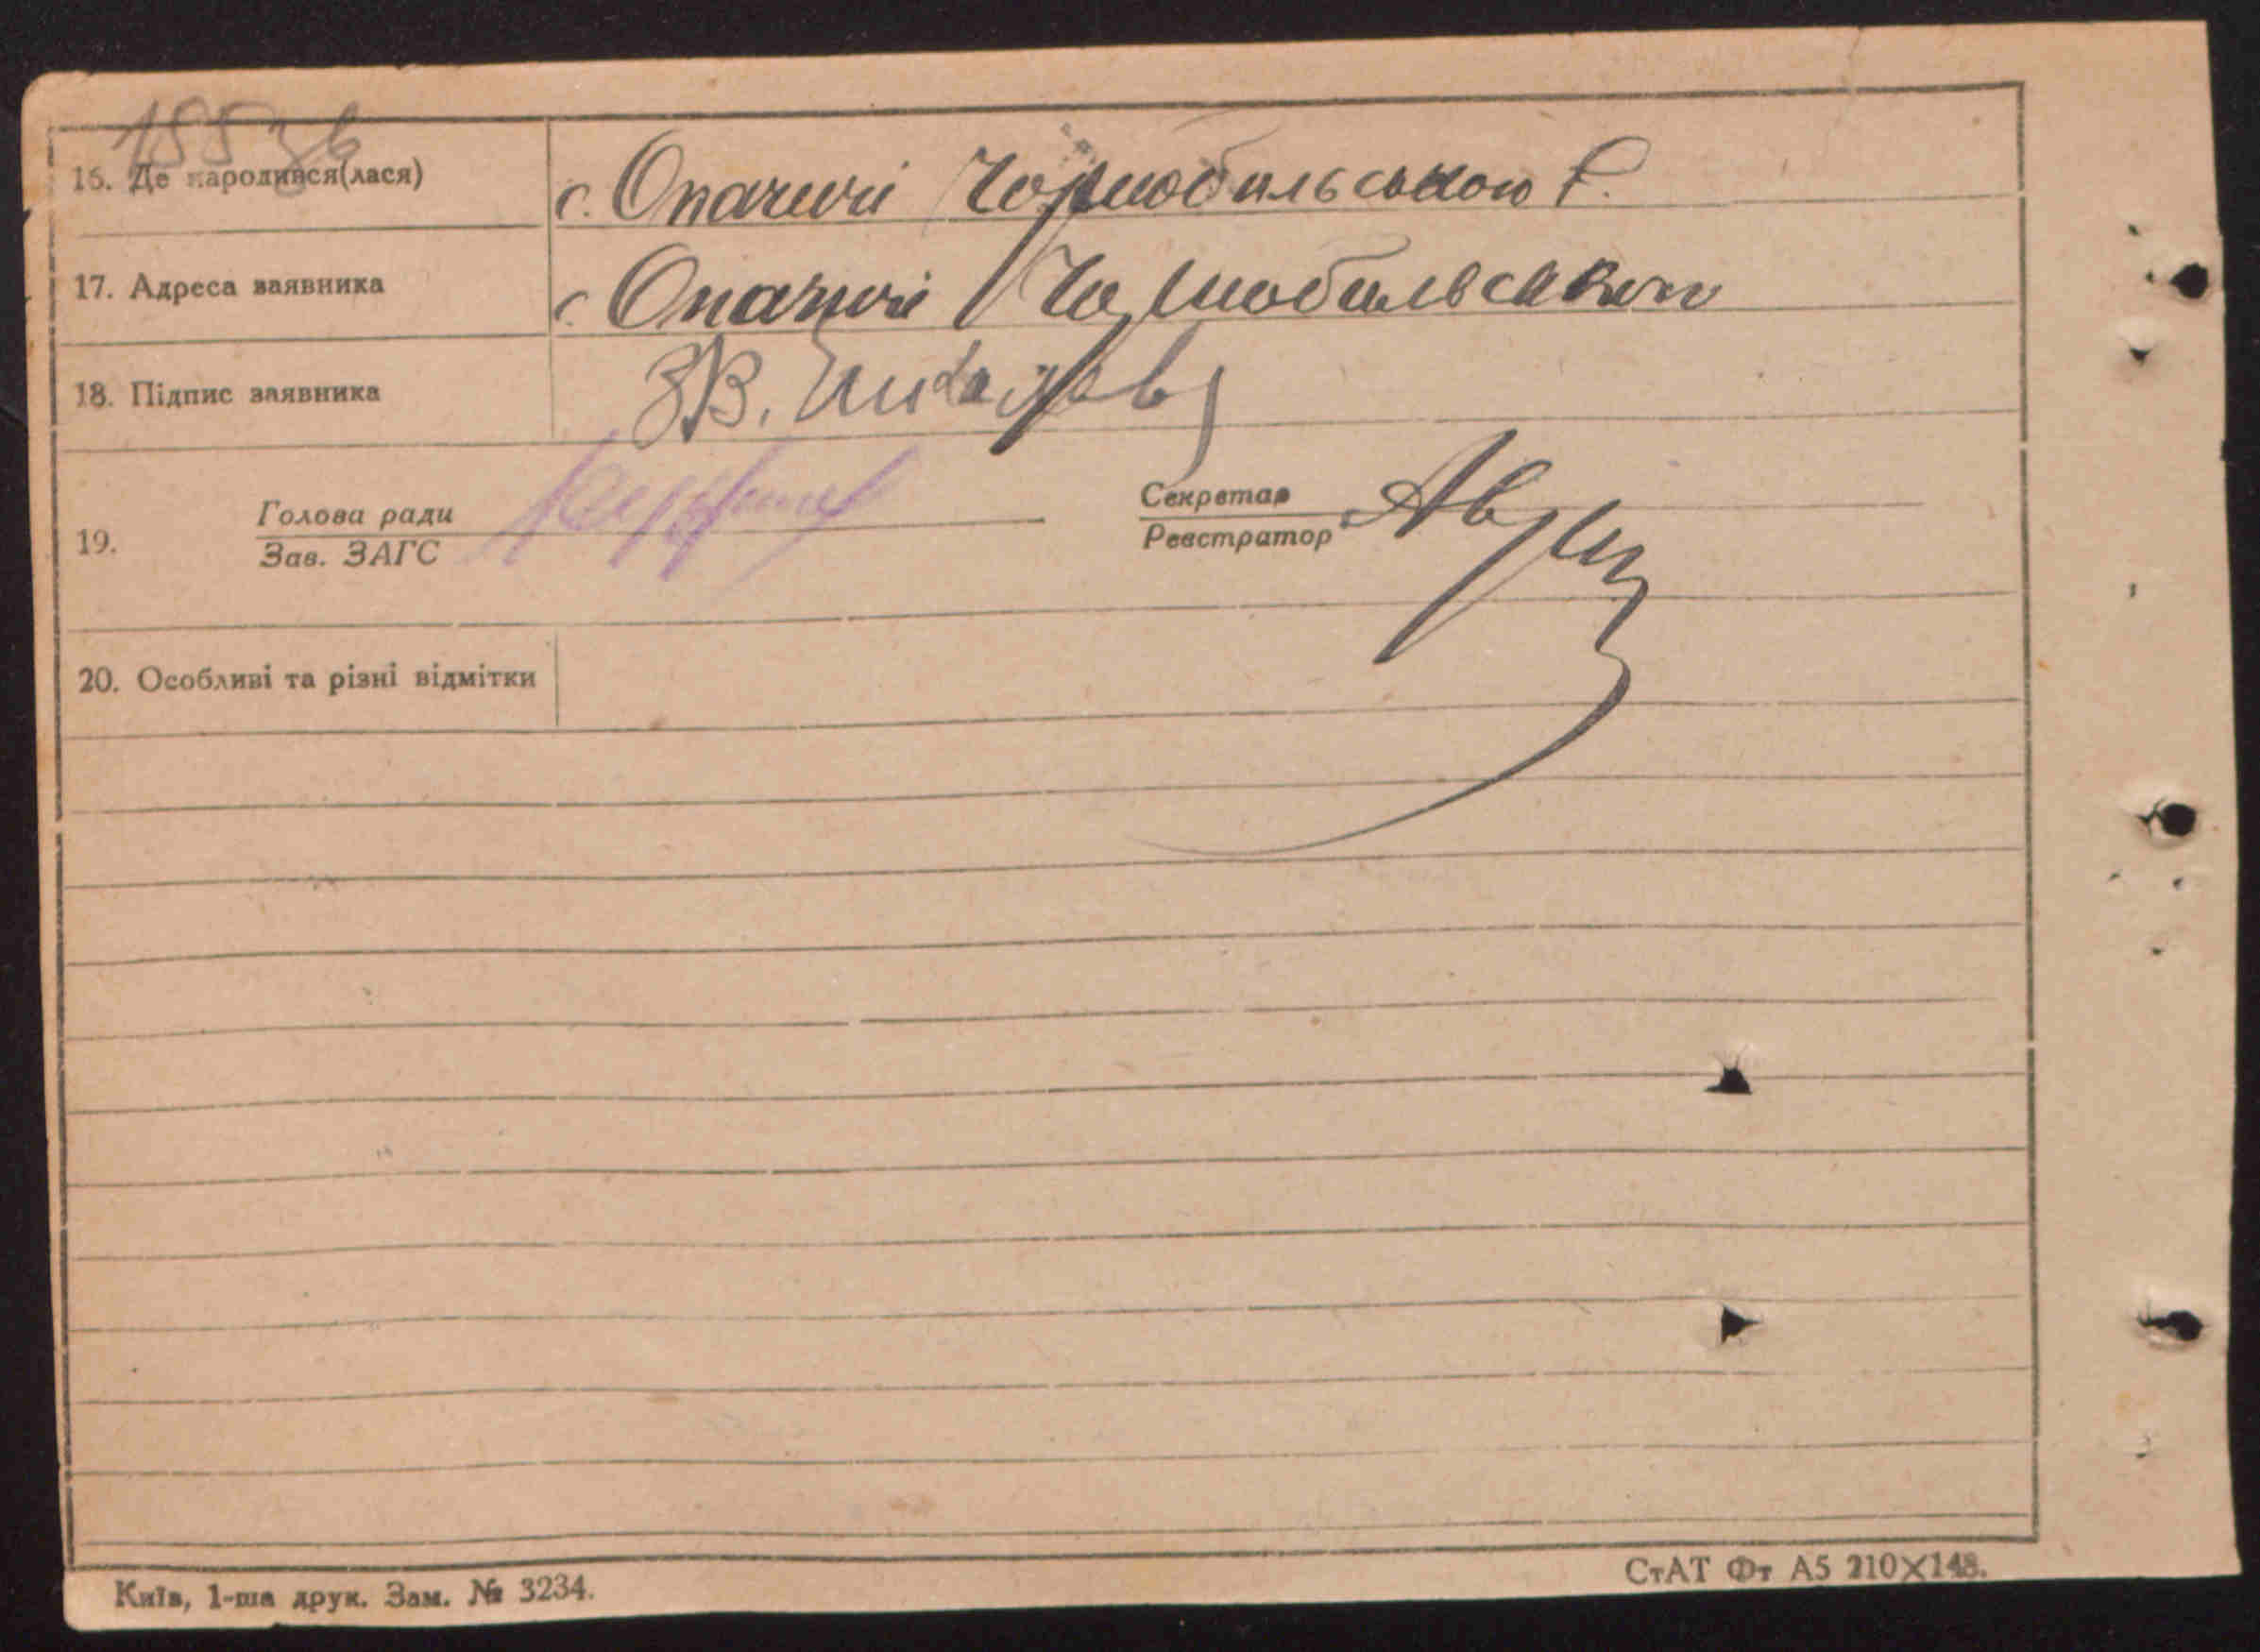 16. Де народився(лася) с. Опачичі Чорнобильського Р.
17. Адреса заявника с. Опачичі Чорнобильського
18. Підпис заявника
19. Голова ради Секретар
Зав. ЗАГС Реєстратор
20. Особливі та різні відмітки
Київ, 1-ша друк. Зам. № 3234. СтАТ Фт А5 210×148.